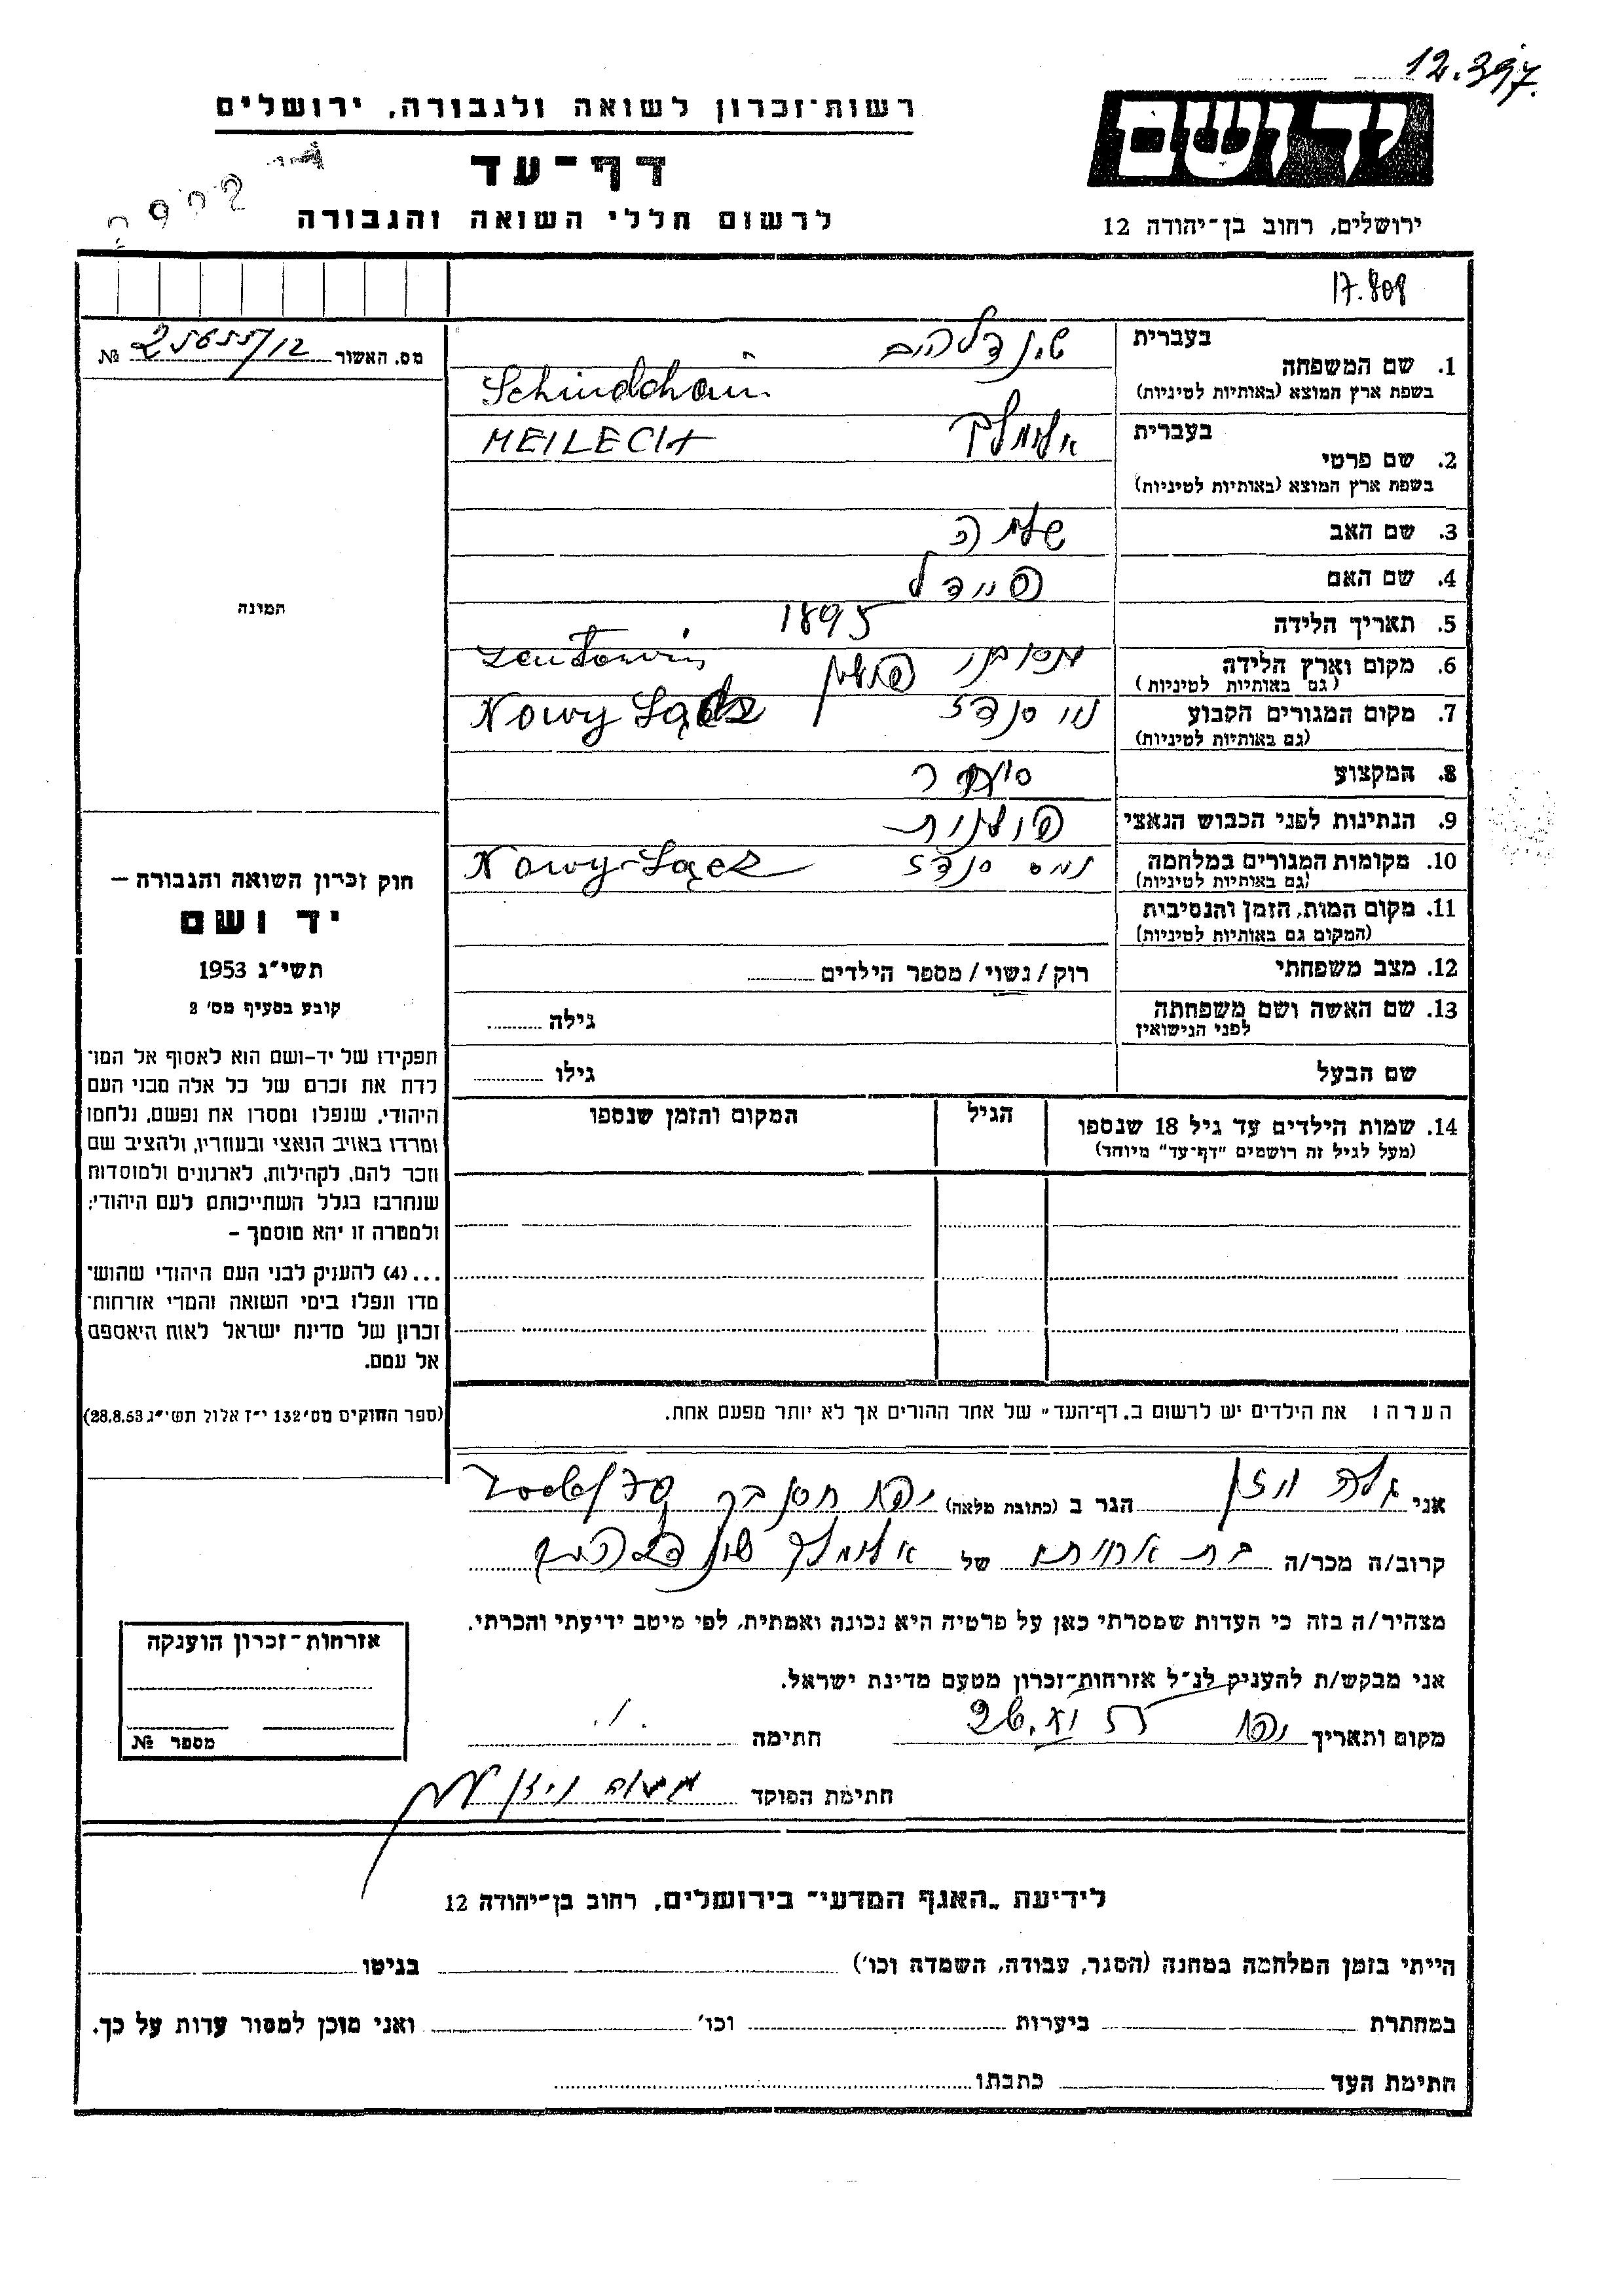 12.397
רשות-זכרון לשואה ולגבורה, ירושלים
יד ושם
דף-עד
לרשום חללי השואה והגבורה
ירושלים, רחוב בן-יהודה 12
17.808
מס. האשור 25655/12 №
בעברית
1. שם המשפחה שינדלהים
בשפת ארץ המוצא (באותיות לטיניות)
בעברית
2. שם פרטי אלימלך MEILECH
בשפת ארץ המוצא (באותיות לטיניות)
3. שם האב
4. שם האם היינדל
5. תאריך הלידה 1895
6. מקום וארץ הלידה
(גם באותיות לטיניות)
7. מקום המגורים הקבוע נוי סנדז Nowy Sącz
(גם באותיות לטיניות)
8. המקצוע סוחר
9. הנתינות לפני הכבוש הנאצי פולנית
10. מקומות המגורים במלחמה סנדז Nowy-Sącz
(גם באותיות לטיניות)
11. מקום המות, הזמן והנסיבות
(המקום גם באותיות לטיניות)
12. מצב משפחתי רוק/נשוי/מספר הילדים
13. שם האשה ושם משפחתה גילה
לפני הנישואין
שם הבעל גילו
14. שמות הילדים עד גיל 18 שנספו הגיל המקום והזמן שנספו
(מעל לגיל זה רושמים "דף-עד" מיוחד)
הערה: את הילדים יש לרשום ב„דף-העד" של אחד ההורים אך לא יותר מפעם אחת.
תמונה
חוק זכרון השואה והגבורה –
יד ושם
תשי"ג 1953
קובע בסעיף מס' 2
תפקידו של יד-ושם הוא לאסוף אל המו־
לדת את זכרם של כל אלה מבני העם
היהודי, שנפלו ומסרו את נפשם, נלחמו
ומרדו באויב הנאצי ובעוזריו, ולהציב שם
וזכר להם, לקהילות, לארגונים ולמוסדות
שנחרבו בגלל השתייכותם לעם היהודי;
ולמטרה זו יהא מוסמך –
...(4) להעניק לבני העם היהודי שהוש־
מדו ונפלו בימי השואה והמרי אזרחות־
זכרון של מדינת ישראל לאות היאספם
אל עמם.
(ספר החוקים מס' 132 י"ז אלול תשי"ג 28.8.53)
אני הגר ב (כתובת מלאה) יפו
קרוב/ה מכר/ה בת אחותו של אלימלך שינדלהים
מצהיר/ה בזה כי העדות שמסרתי כאן על פרטיה היא נכונה ואמתית, לפי מיטב ידיעתי והכרתי.
אני מבקש/ת להעניק לנ"ל אזרחות-זכרון מטעם מדינת ישראל.
מקום ותאריך יפו 55 חתימה
חתימת הפוקד
אזרחות-זכרון הוענקה
מספר №
לידיעת „האגף המדעי" בירושלים, רחוב בן-יהודה 12
הייתי בזמן המלחמה במחנה (הסגר, עבודה, השמדה וכו') בגיטו
במחתרת ביערות וכו' ואני מוכן למסור עדות על כך.
חתימת העד כתבתו